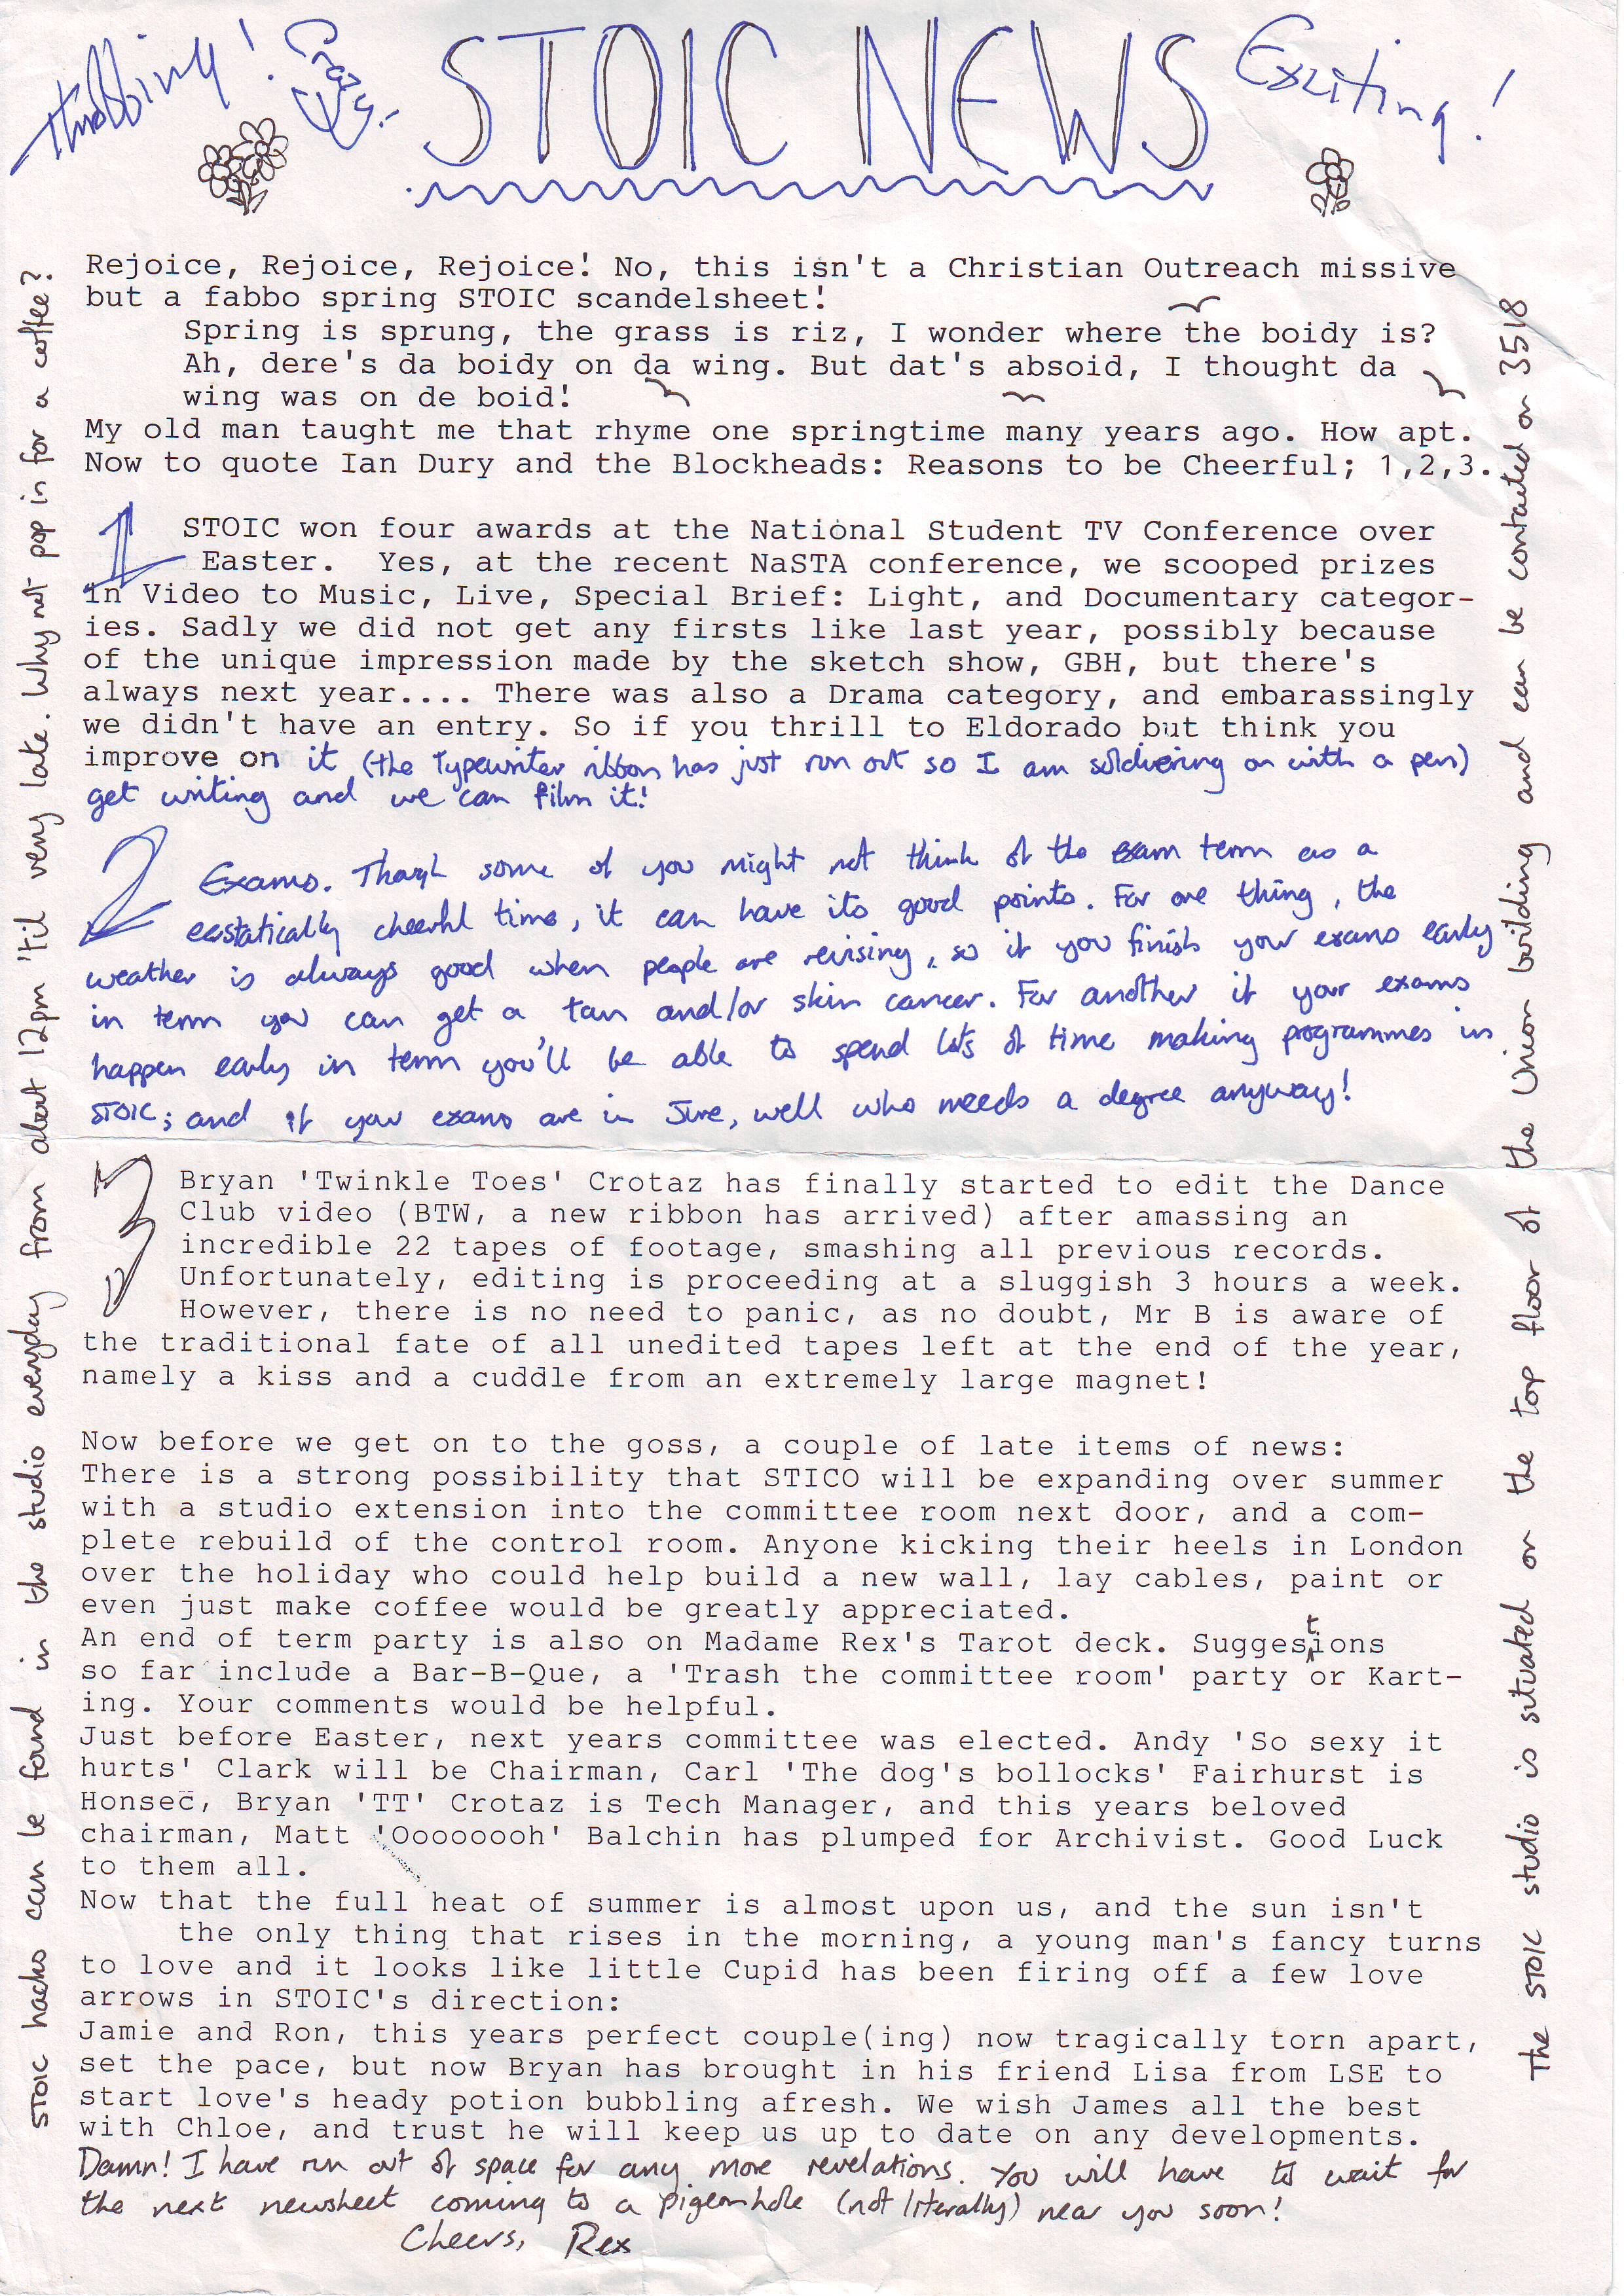 Throbbing! Crazy! STOIC NEWS Exciting!
Rejoice, Rejoice, Rejoice! No, this isn't a Christian Outreach missive
but a fabbo spring STOIC scandelsheet!
Spring is sprung, the grass is riz, I wonder where the boidy is?
Ah, dere's da boidy on da wing. But dat's absoid, I thought da
wing was on de boid!
My old man taught me that rhyme one springtime many years ago. How apt.
Now to quote Ian Dury and the Blockheads: Reasons to be Cheerful; 1,2,3.
1 STOIC won four awards at the National Student TV Conference over
Easter. Yes, at the recent NaSTA conference, we scooped prizes
in Video to Music, Live, Special Brief: Light, and Documentary categor-
ies. Sadly we did not get any firsts like last year, possibly because
of the unique impression made by the sketch show, GBH, but there's
always next year.... There was also a Drama category, and embarassingly
we didn't have an entry. So if you thrill to Eldorado but think you
improve on it (the Typewriter ribbon has just run out so I am soldiering on with a pen)
get writing and we can film it!
2 Exams. Though some of you might not think of the exam term as a
ecstatically cheerful time, it can have its good points. For one thing, the
weather is always good when people are revising, so if you finish your exams early
in term you can get a tan and/or skin cancer. For another if your exams
happen early in term you'll be able to spend lots of time making programmes in
STOIC; and if your exams are in June, well who needs a degree anyway!
3 Bryan 'Twinkle Toes' Crotaz has finally started to edit the Dance
Club video (BTW, a new ribbon has arrived) after amassing an
incredible 22 tapes of footage, smashing all previous records.
Unfortunately, editing is proceeding at a sluggish 3 hours a week.
However, there is no need to panic, as no doubt, Mr B is aware of
the traditional fate of all unedited tapes left at the end of the year,
namely a kiss and a cuddle from an extremely large magnet!
Now before we get on to the goss, a couple of late items of news:
There is a strong possibility that STICO will be expanding over summer
with a studio extension into the committee room next door, and a com-
plete rebuild of the control room. Anyone kicking their heels in London
over the holiday who could help build a new wall, lay cables, paint or
even just make coffee would be greatly appreciated.
An end of term party is also on Madame Rex's Tarot deck. Suggestions
so far include a Bar-B-Que, a 'Trash the committee room' party or Kart-
ing. Your comments would be helpful.
Just before Easter, next years committee was elected. Andy 'So sexy it
hurts' Clark will be Chairman, Carl 'The dog's bollocks' Fairhurst is
Honsec, Bryan 'TT' Crotaz is Tech Manager, and this years beloved
chairman, Matt 'Oooooooh' Balchin has plumped for Archivist. Good Luck
to them all.
Now that the full heat of summer is almost upon us, and the sun isn't
the only thing that rises in the morning, a young man's fancy turns
to love and it looks like little Cupid has been firing off a few love
arrows in STOIC's direction:
Jamie and Ron, this years perfect couple(ing) now tragically torn apart,
set the pace, but now Bryan has brought in his friend Lisa from LSE to
start love's heady potion bubbling afresh. We wish James all the best
with Chloe, and trust he will keep us up to date on any developments.
Damn! I have run out of space for any more revelations. You will have to wait for
the next newsheet coming to a pigeonhole (not literally) near you soon!
Cheers, Rex
STOIC hacks can be found in the studio everyday from about 12pm 'til very late. Why not pop in for a coffee?
The STOIC studio is situated on the top floor of the Union building and can be contacted on 3518